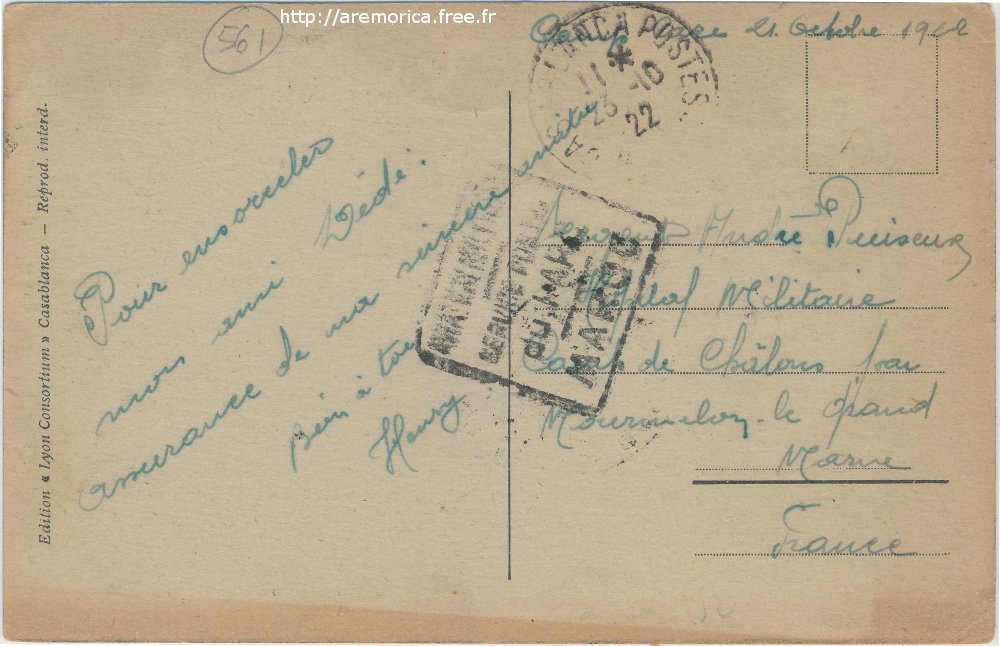 http://aremorica.free.fr
561
21 Octobre 1922
CASABLANCA POSTES
*
11
23 -10
22
Pour ensorceler
mon ami Dédé :
assurance de ma sincère amitié
Bien à toi
Henry.
SERVICE POSTAL
du
MAROC
André Puiseux
Hôpital Militaire
Camp de Châlons par
Mourmelon-le Grand
Marne
France
Edition « Lyon Consortium » Casablanca – Reprod. interd.